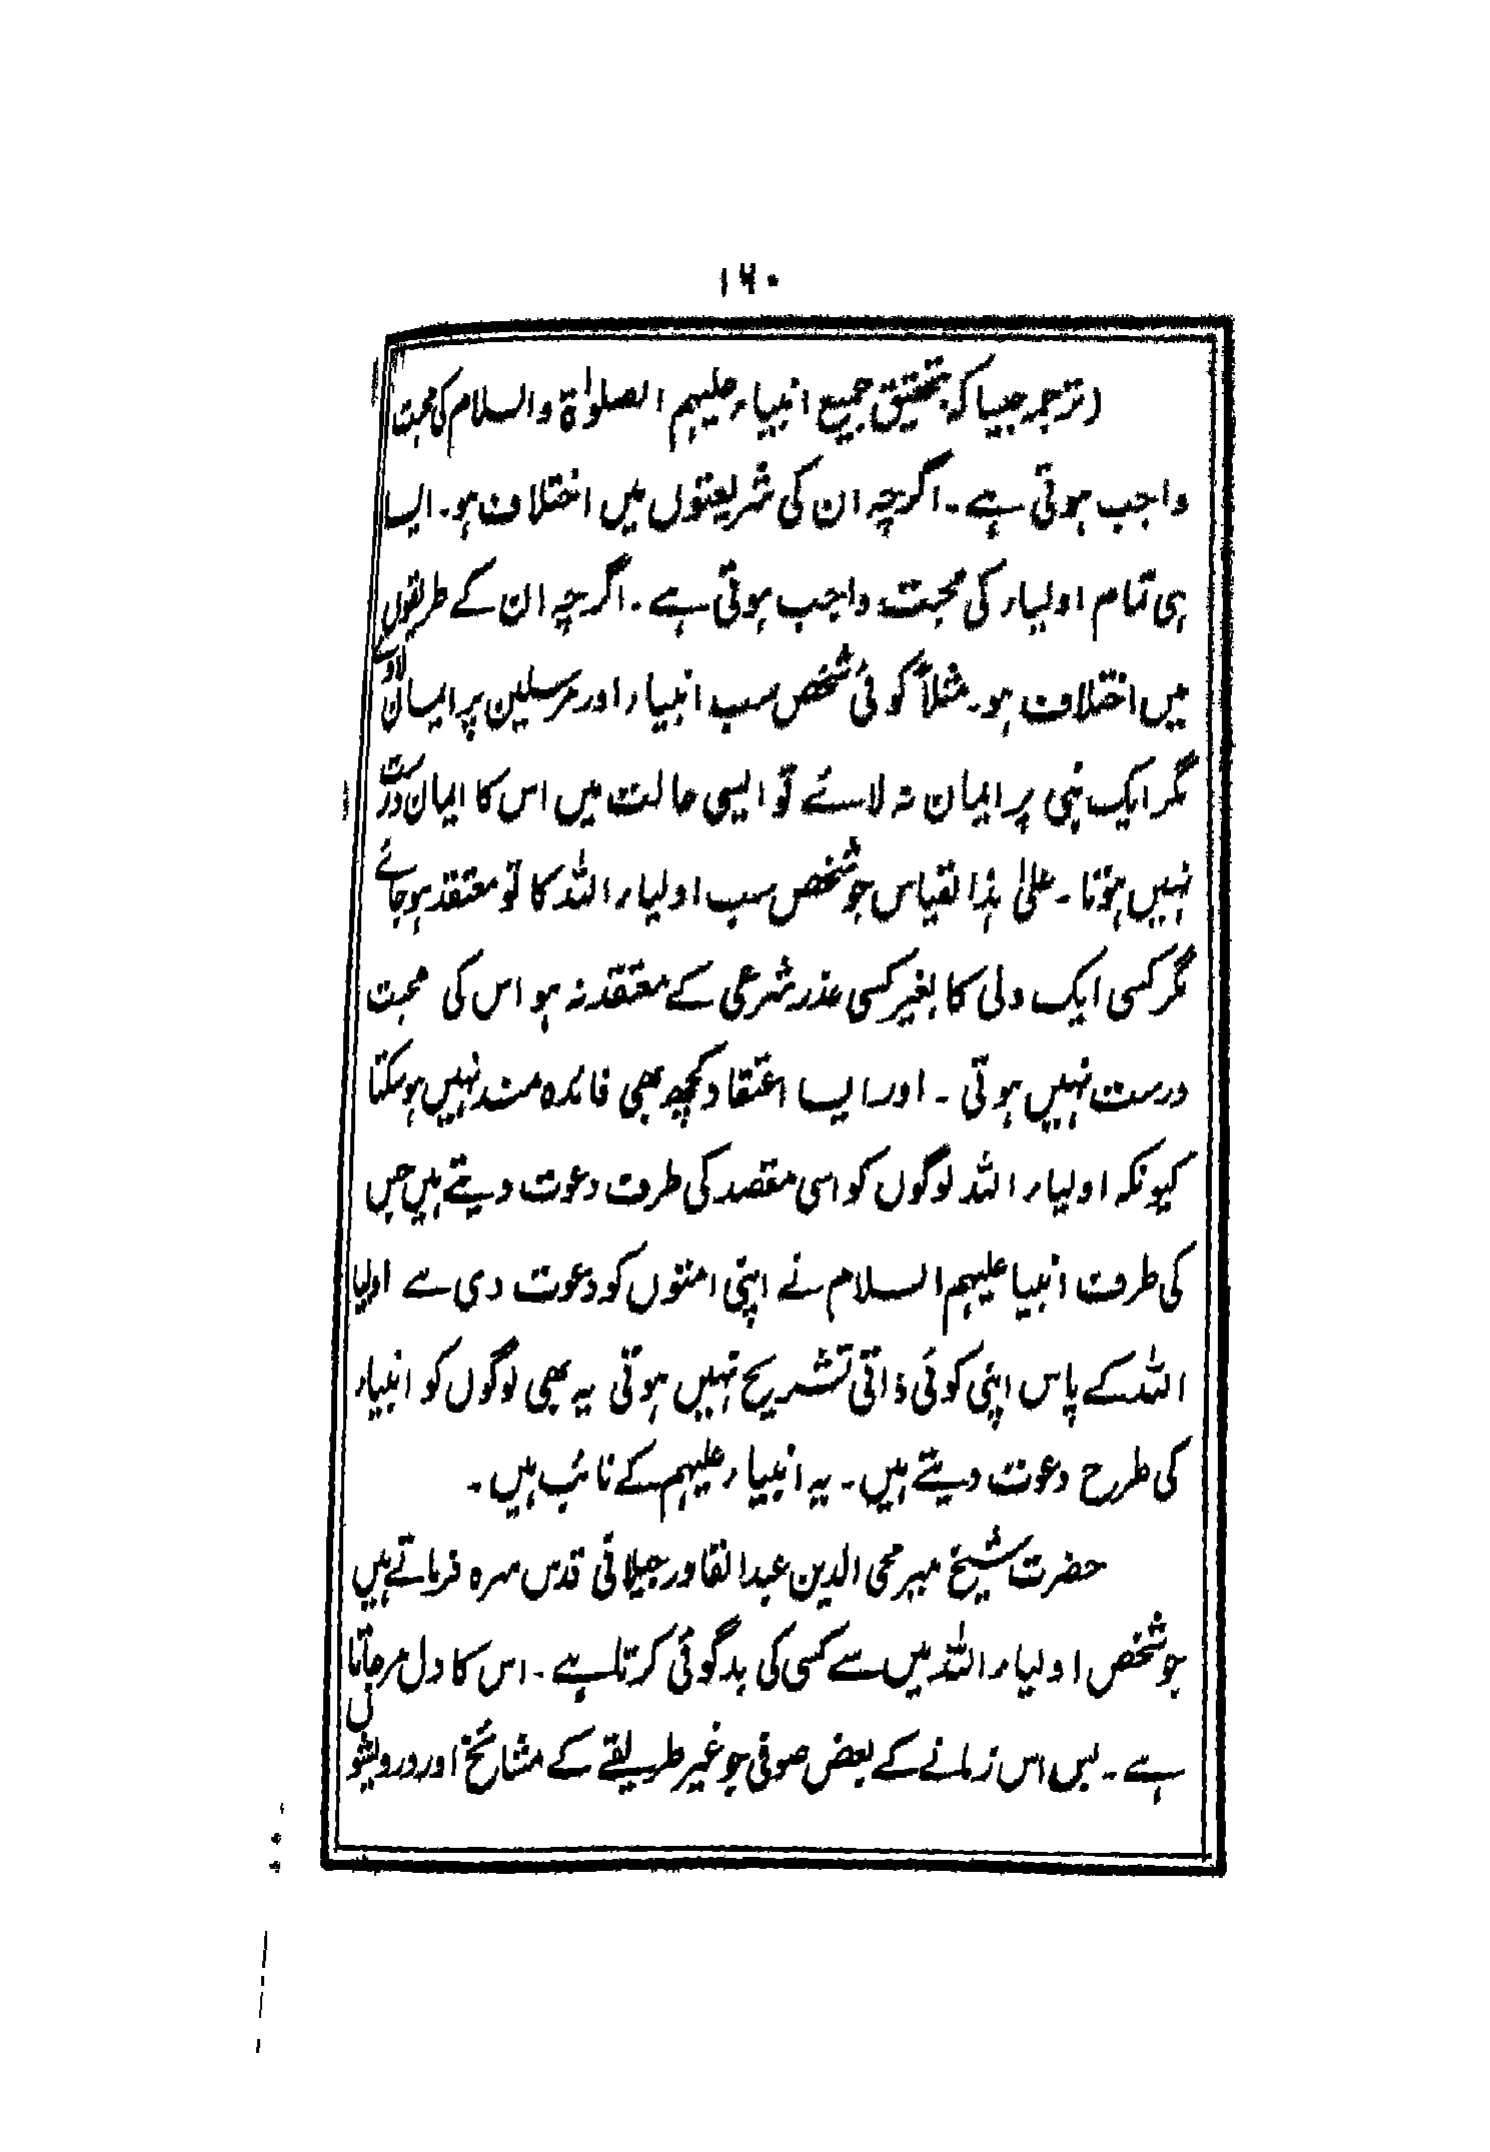 ۱۶۰
(ترجمہ جیسا کہ بتحقیق جمیع انبیاء علیہم الصلوٰۃ والسلام کی محبت
واجب ہوتی ہے۔ اگرچہ ان کی شریعتوں میں اختلاف ہو۔ ایسا
ہی تمام اولیاء کی محبت واجب ہوتی ہے۔ اگرچہ ان کے طریقوں
میں اختلاف ہو۔ مثلاً کوئی شخص سب انبیاء اور مرسلین پر ایمان لاوے
مگر ایک نبی پر ایمان نہ لائے تو ایسی حالت میں اس کا ایمان درست
نہیں ہوتا۔ علیٰ ہذا لقیاس جو شخص سب اولیاء اللہ کا تو معتقد ہو جائے
مگر کسی ایک ولی کا بغیر کسی عذر شرعی کے معتقد نہ ہو اس کی محبت
درست نہیں ہوتی ۔ اور ایسا اعتقاد کچھ بھی فائدہ مند نہیں ہو سکتا
کیونکہ اولیاء اللہ لوگوں کو اسی مقصد کی طرف دعوت دیتے ہیں جس
کی طرف انبیا علیہم السلام نے اپنی امتوں کو دعوت دی سے اولیا
اللہ کے پاس اپنی کوئی ذاتی تشریح نہیں ہوتی یہ بھی لوگوں کو انبیاء
کی طرح دعوت دیتے ہیں۔ یہ انبیاء علیہم کے نائب ہیں۔
حضرت شیخ میر محی الدین عبدالقادر جیلانی قدس سرہ فرماتے ہیں
جو شخص اولیاء اللہ میں سے کسی کی بدگوئی کرتا ہے۔ اس کا دل مر جاتا
ہے۔ بس اس زمانے کے بعض صوفی جو غیر طریقے کے مشائخ اور درویشوں